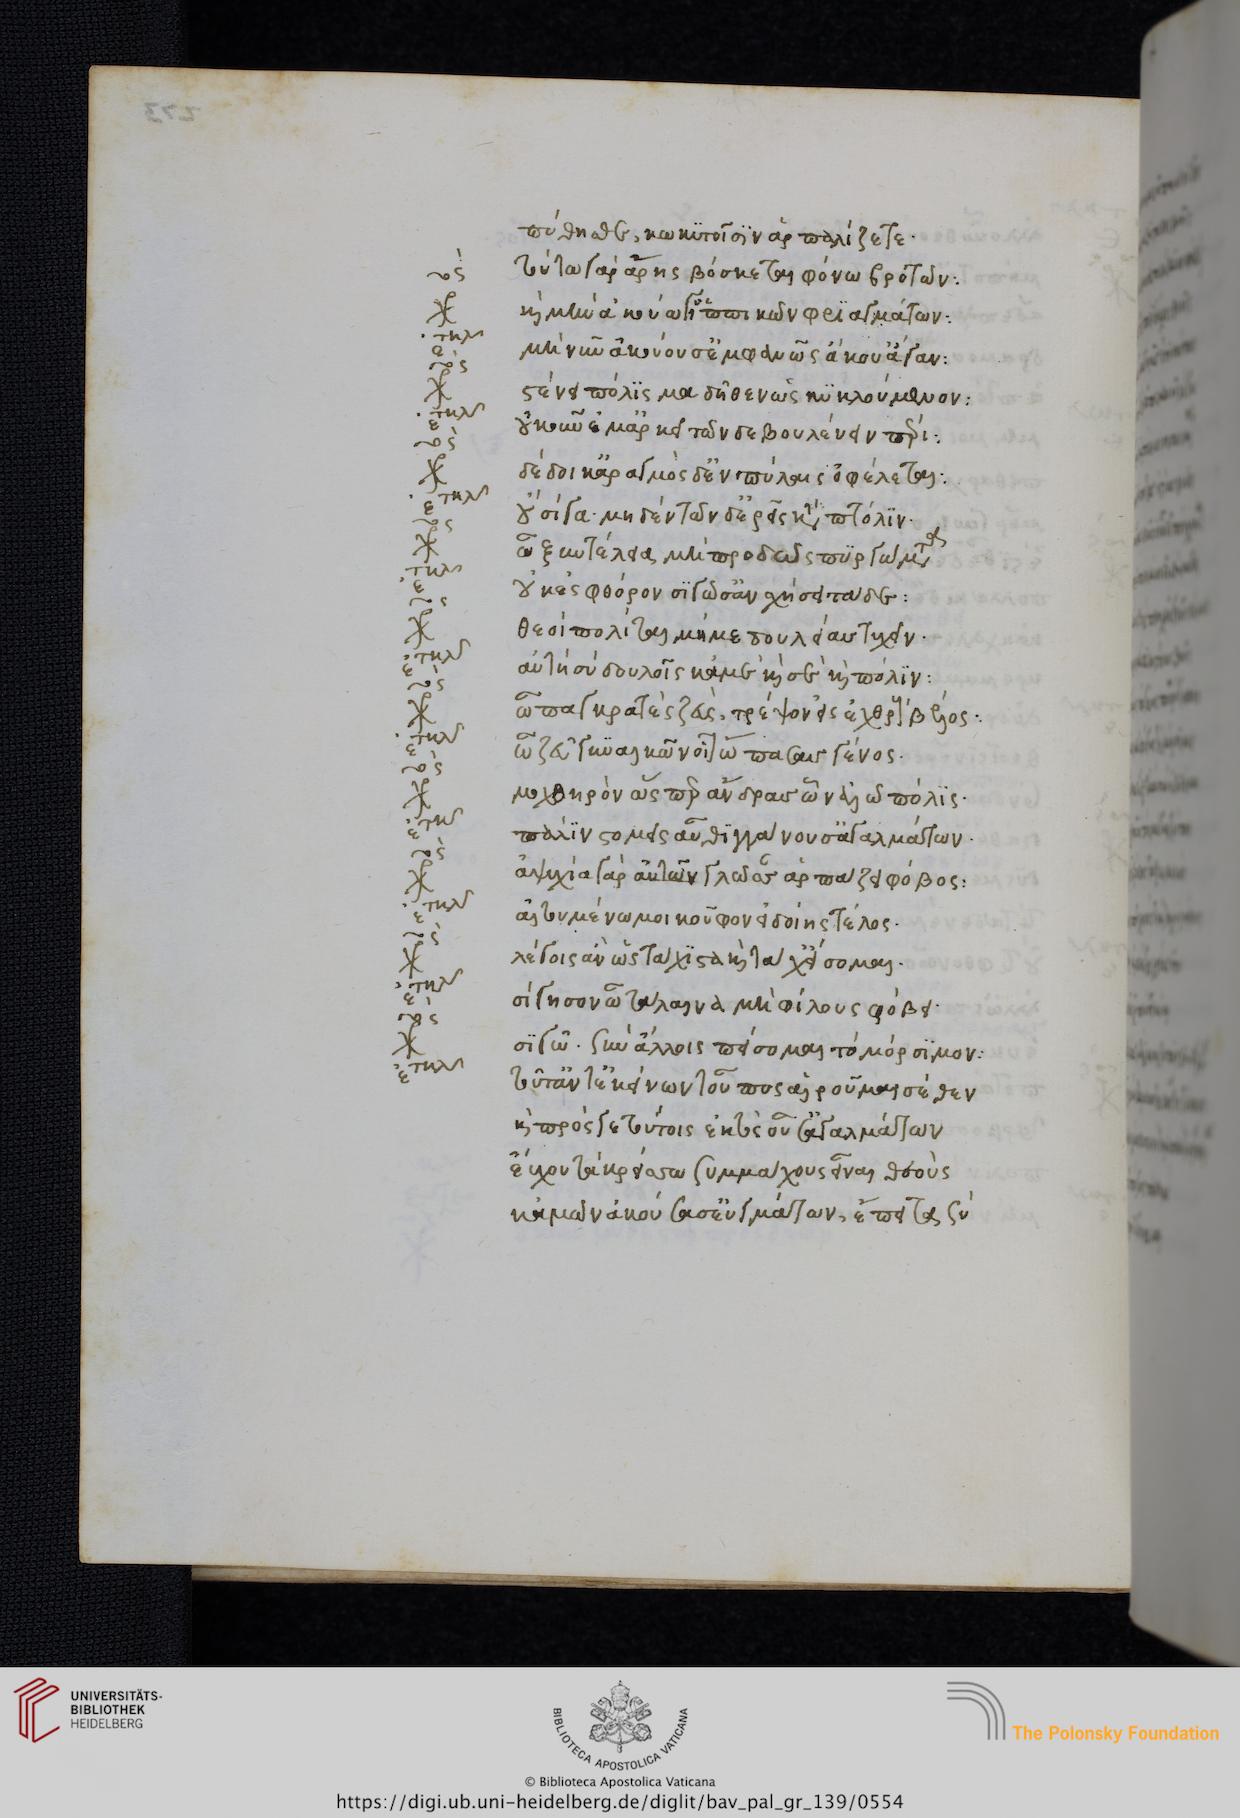 πύθησθε, κωκυτοῖσιν ἁρπαλίζετε·
τούτω γὰρ ἄρης βόσκεται φόνω βροτῶν:
καὶ μὴν ἀκούω γ' ἱππικῶν φρυαγμάτων:
μή νυν ἀκούουσ' ἐμφανῶς ἄκου' ἄγαν:
στένει πόλισμα δῆθεν ὡς κυκλουμένων:
οὐκοῦν ἔμ' ἀρκεῖ τῶνδε βουλεύειν πέρι:
δέδοικ' ἀραγμὸς δ' ἐν πύλαις ὀφέλεται:
οὐ σίγα· μηδὲν τῶνδ' ἐρεῖς κατὰ πτόλιν·
ὦ ξυντέλεια, μὴ προδῶς πυργώματα
οὐκ ἐς φθόρον σιγῶσ' ἀνσχήσει τάδε:
θεοὶ πολῖται, μή με δουλείας τυχεῖν·
αὐτὴ σὺ δουλοῖς κἀμὲ καὶ σὲ καὶ πόλιν:
ὦ παγκρατὲς ζεῦ, τρέψον εἰς ἐχθροὺς βέλος:
ὦ ζεῦ γυναικῶν οἷον ὤπασας γένος·
μοχθηρὸν ὥσπερ ἄνδρας ὧν ἁλῶ πόλις·
παλινστομεῖς αὖ θιγγάνουσ' ἀγαλμάτων·
ἀψυχία γὰρ αὐτῶν γλῶσσαν ἁρπάζει φόβος:
αἰτουμένω μοι κοῦφον εἰ δοίης τέλος·
λέγοις ἂν ὡς τάχιστα καὶ τάχ' εἴσομαι·
σίγησον ὦ τάλαινα μὴ φίλους φόβει·
σιγῶ· σὺν ἄλλοις πείσομαι τὸ μόρσιμον:
τοῦτ' ἀντ' ἐκείνων τοὖπος αἱροῦμαι σέθεν
καὶ πρός γε τούτοις ἐκτὸς οὖσ' ἀγαλμάτων
εὔχου τὰ κρείσσω ξυμμάχους εἶναι θεοὺς
κἀμῶν ἀκούσασ' εὐγμάτων, ἔπειτα σύ
UNIVERSITÄTS-
BIBLIOTHEK
HEIDELBERG
BIBLIOTECA APOSTOLICA VATICANA
The Polonsky Foundation
© Biblioteca Apostolica Vaticana
https://digi.ub.uni-heidelberg.de/diglit/bav_pal_gr_139/0554